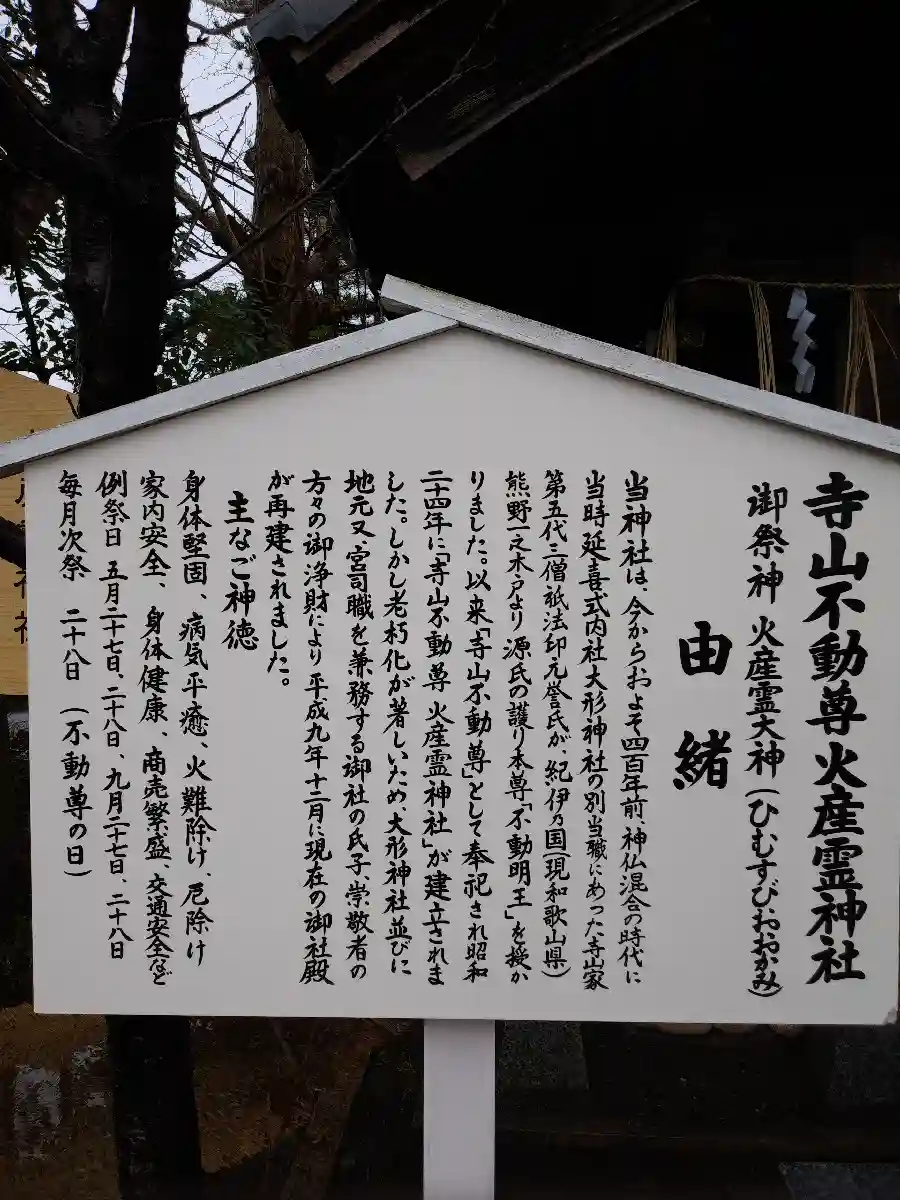 寺山不動尊火産霊神社
御祭神 火産霊大神(ひむすびおおかみ)
由緒
当神社は、今からおよそ四百年前、神仏混合の時代に
当時延喜式内社大形神社の別当職にあった寺山家
第五代三僧祇法印元誉氏が、紀伊乃国(現和歌山県)
熊野一之木戸より源氏の護り本尊「不動明王」を授か
りました。以来「寺山不動尊」として奉祀され昭和
二十四年に「寺山不動尊火産霊神社」が建立されま
した。しかし老朽化が著しいため、大形神社並びに
地元又、宮司職を兼務する御社の氏子、崇敬者の
方々の御浄財により平成九年十二月に現在の御社殿
が再建されました。
主なご神徳
身体堅固、病気平癒、火難除け、厄除け
家内安全、身体健康、商売繁盛、交通安全など
例祭日 五月二十七日、二十八日、九月二十七日、二十八日
毎月次祭 二十八日(不動尊の日)